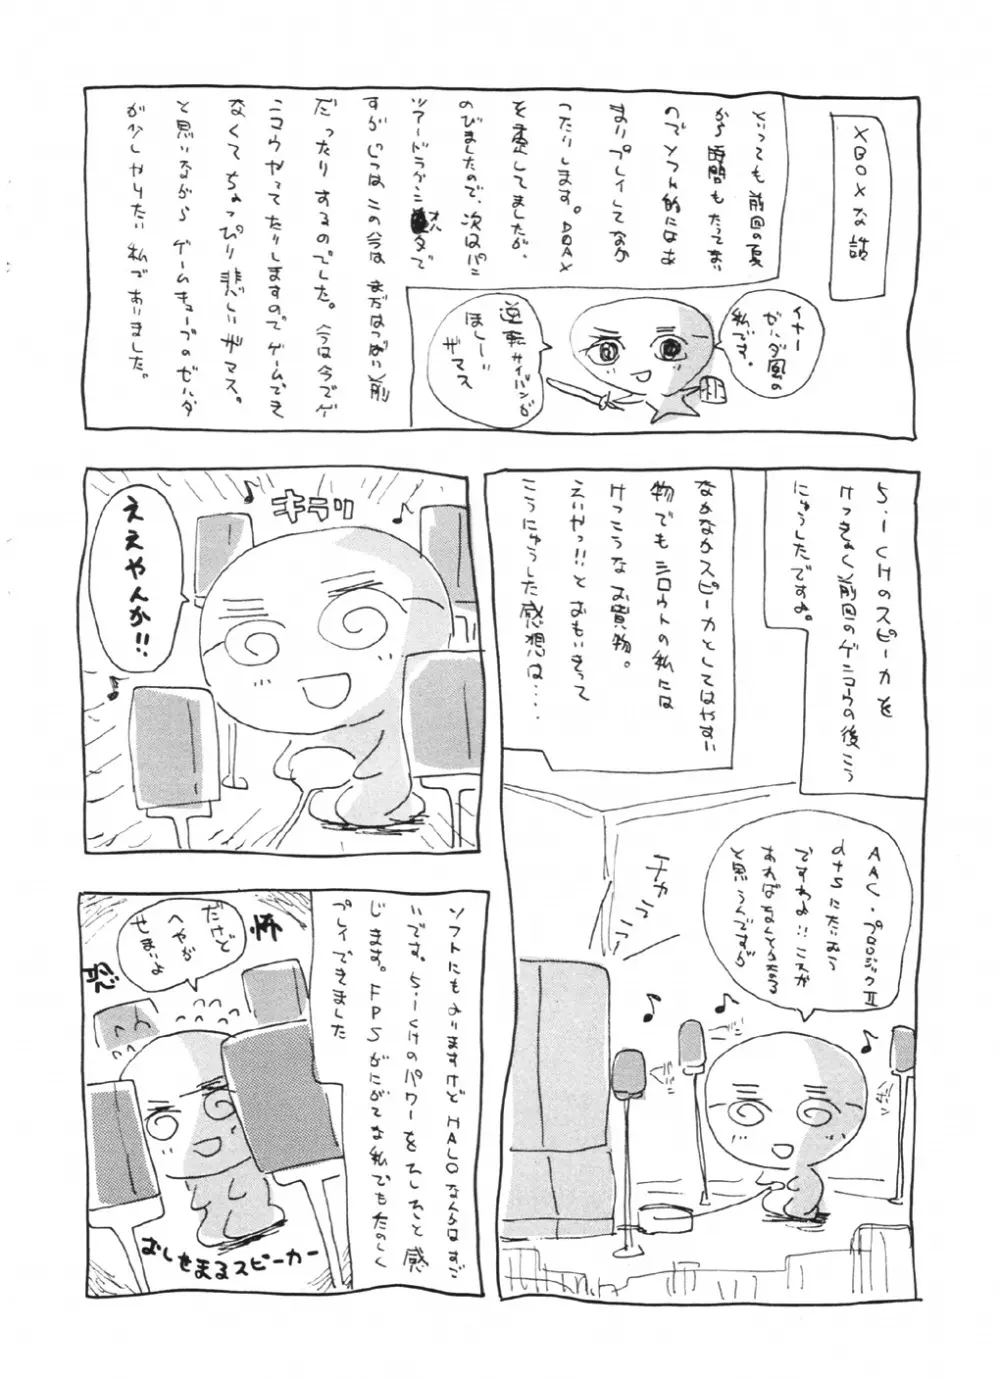 XBOXな話
とっても前回の夏
から時間もたってない
のでソフト的にはあ
まりプレイしてなか
ったりします。DOAX
を楽しんでましたが、
のびましたので、次はパン
ツァードラグーンオルタで
すがじつはこの今はまだはつばい前
だったりするのでした。今は今でゲ
ンコウやってたりしますのでゲームできて
なくてちょっぴり悲しいザマス。
と思いながらゲームキューブのゼルダ
が少しやりたい私でありました。
イナー
ゼルダ風の
私です。
逆転サイバンが
ほしー
ザマス
5.1CHのスピーカを
けっきょく前回のゲンコウの後こう
にゅうしたですよ。
なかなかスピーカとしてはやすい
物でもシロウトの私には
けっこうなお買物。
えいやっ!!とおもいきって
こうにゅうした感想は‥‥
AAC・プロロジックII
dtsにたいおう
ですわよ!!これが
あればなんとかなる
と思うんですが
チャララ
キラリ
ええやんか!!
ソフトにもよりますけどHALOなんかはすご
いです。5.1CHのパワーをひしひしと感
じます。FPSがにがてな私でもたのしく
プレイできました
だけど
へやが
せまいよ
怖
おしせまるスピーカー